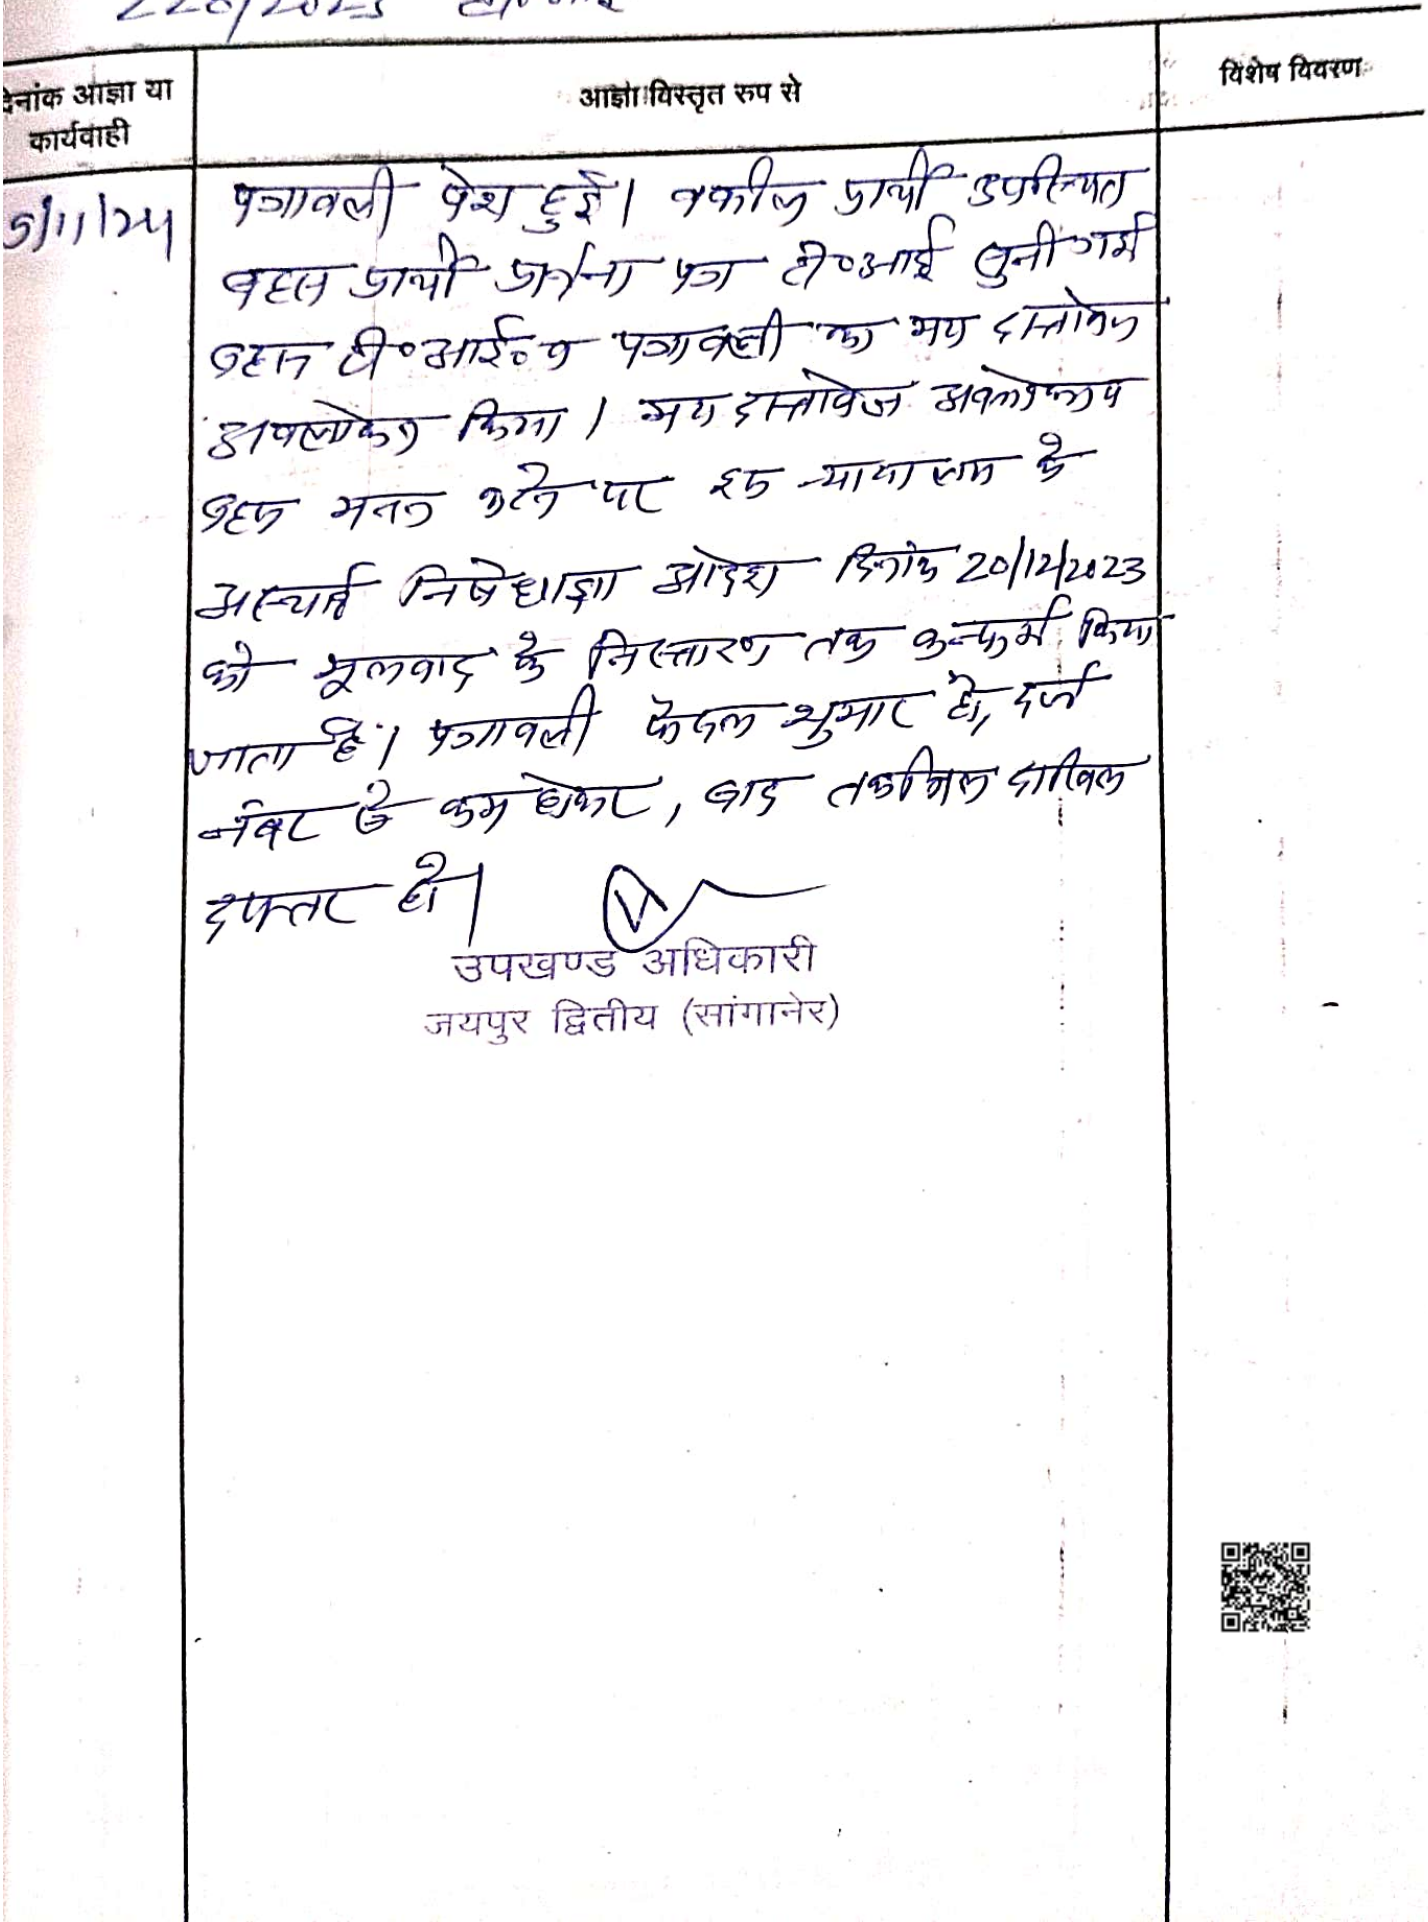 दिनांक आज्ञा या
कार्यवाही
आज्ञा विस्तृत रुप से
विशेष विवरण
5/11/24
पत्रावली पेश हुई। वकील प्रार्थी उपस्थित
बहस प्रार्थी प्रार्थना पत्र टी०आई सुनी गई
बहस टी०आई० व पत्रावली का मय दस्तावेज
अवलोकन किया। मय दस्तावेज अवलोकन व
बहस मनन करने पर इस न्यायालय के
अस्थाई निषेधाज्ञा आदेश दिनांक 20/12/2023
को मूलवाद के निस्तारण तक कन्फर्म किया
जाता है। पत्रावली फैसल शुमार हो, दर्ज
नंबर से कम होकर, बाद तकमिल दाखिल
दफ्तर हो।
उपखण्ड अधिकारी
जयपुर द्वितीय (सांगानेर)